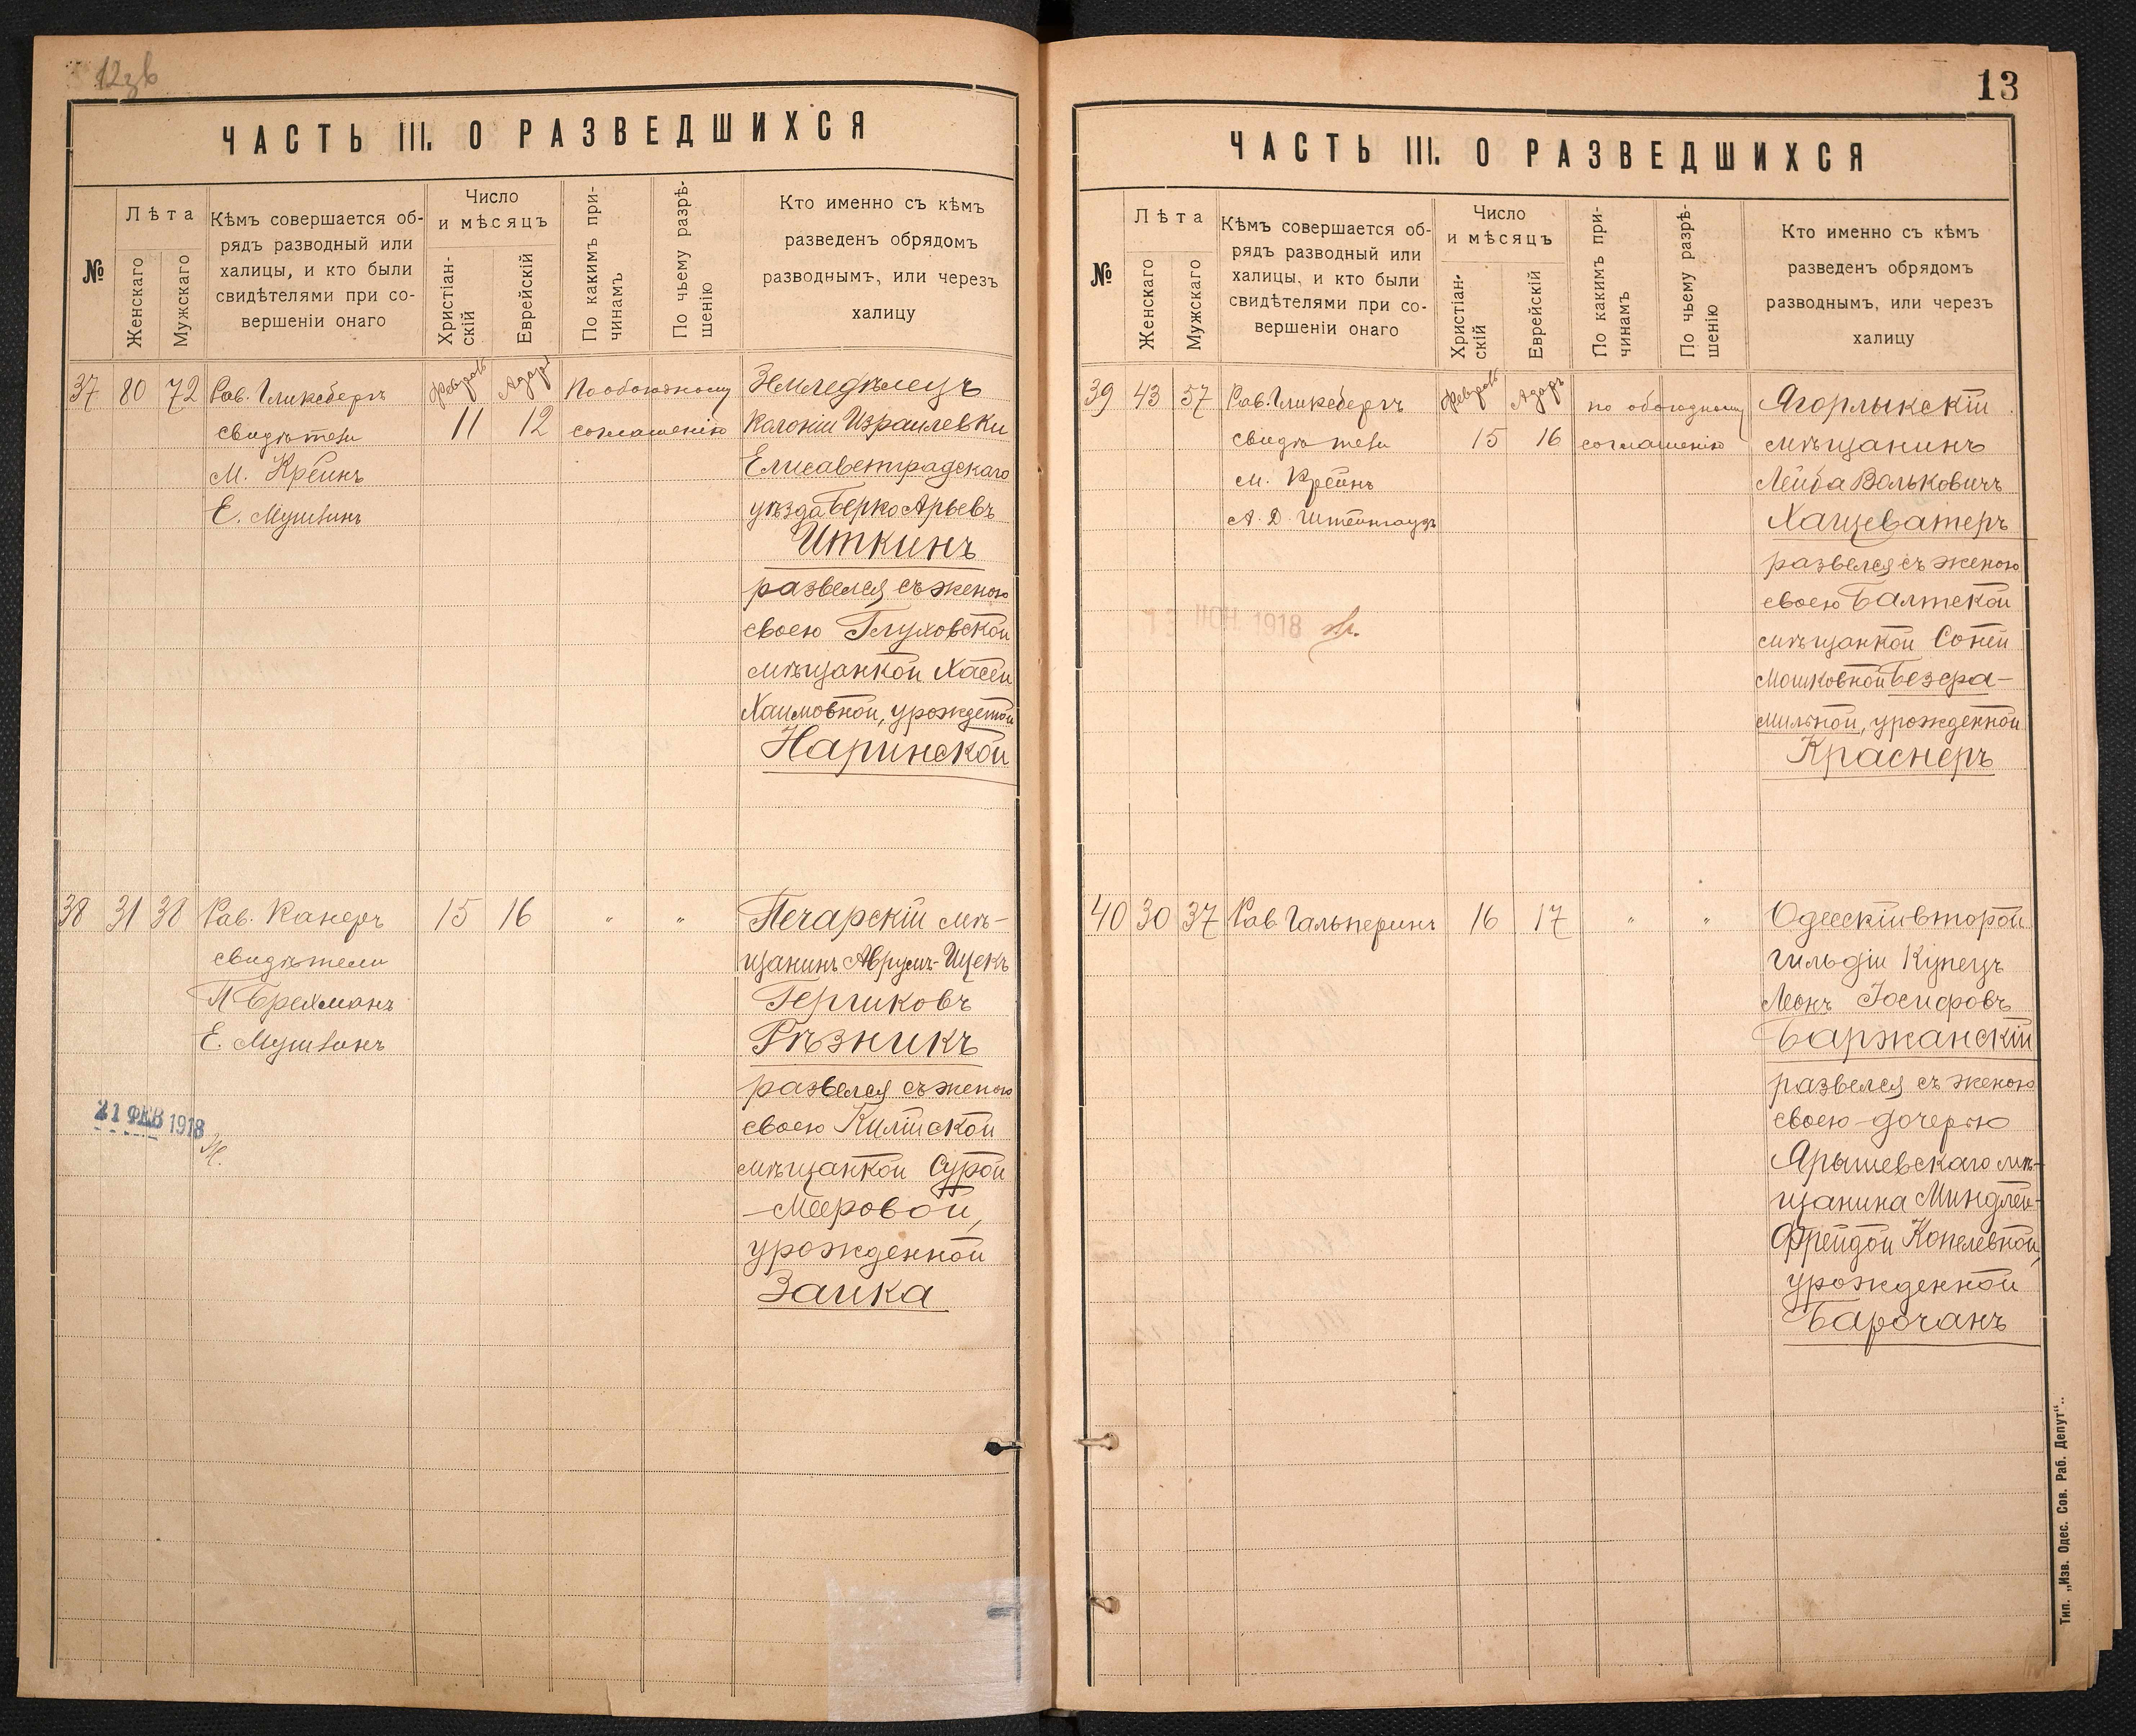 12зв
ЧАСТЬ III. О РАЗВЕДШИХСЯ
№
Лѣта
Женскаго
Мужскаго
Кѣмъ совершается об-
рядъ разводный или
халицы, и кто были
свидѣтелями при со-
вершеніи онаго
Число
и мѣсяцъ
Христіан-
скій
Еврейскій
По какимъ при-
чинамъ
По чьему разрѣ-
шенію
Кто именно съ кѣмъ
разведенъ обрядомъ
разводнымъ, или черезъ
халицу
37 80 72
Рав. Гликсбергъ
свидѣтели
М. Крейнъ
Е.
Февраль
11
Адаръ
12
По обоюдному
соглашенію
Земледѣлецъ
Колоніи Израилевки
Елисаветградскаго
уѣзда Берко Арьевъ
Иткинъ
развелся съ женою
своею Глуховской
мѣщанкой Хасей
Хаимовной, урожденной
Наринской
38 31 38
Рав. Канеръ
свидѣтели
П Брехманъ
Е.
15 16
" "
Печарскій мѣ-
щанинъ Аврумъ-Ицекъ
Гершковъ
Рѣзникъ
развелся съ женою
своею Килійской
мѣщанкой Сурой
-Мееровой,
урожденной
Заика
21 ФЕВ 1918
13
ЧАСТЬ III. О РАЗВЕДШИХСЯ
№
Лѣта
Женскаго
Мужскаго
Кѣмъ совершается об-
рядъ разводный или
халицы, и кто были
свидѣтелями при со-
вершеніи онаго
Число
и мѣсяцъ
Христіан-
скій
Еврейскій
По какимъ при-
чинамъ
По чьему разрѣ-
шенію
Кто именно съ кѣмъ
разведенъ обрядомъ
разводнымъ, или черезъ
халицу
39 43 57
Рав. Гликсбергъ
свидѣтели
М. Крейнъ
А. Д.
Февраль
15
Адаръ
16
по обоюдному
соглашенію
Ягорлыкскій
мѣщанинъ
Лейба Вольковичъ
Хащеватеръ
развелся съ женою
своею Балтской
мѣщанкой Соней
Мошковной Безра-
мильной, урожденной
Краснеръ
13 ИЮН 1918
40 30 37
Рав Гальперинъ
16 17
" "
Одесскій второй
гильдіи Купецъ
Леонъ Іосифовъ
Баржанскій
развелся съ женою
своею дочерью
Ярышевскаго мѣ-
щанина Миндлей-
Фрейдой Копелевной,
урожденной
Барочанъ
Тип. „Изв. Одес. Сов. Раб. Депут“.